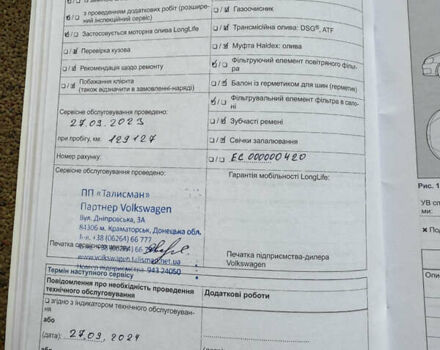 з проведенням додаткових робіт (розширений інспекційний сервіс)
Застосовується моторна олива LongLife
Перевірка кузова
Рекомендація щодо ремонту
Побажання клієнта
(також відзначити в замовленні-наряді)
Газоочисник
Трансмісійна олива: DSG®, ATF
Муфта Haldex: олива
Фільтруючий елемент повітряного фільтра
Балон із герметиком для шин (герметик)
Фільтрувальний елемент фільтра в салоні
Зубчасті ремені
Свічки запалювання
Сервісне обслуговування проведено:
27.09.2023
при пробігу, км: 129127
Номер рахунку:
ЕС 000000420
Сервісне обслуговування проведено:
Гарантія мобільності LongLife:
ПП «Талисман»
Партнер Volkswagen
Вул. Дніпровська, 3А
84306 м. Краматорськ, Донецька обл.
+38 (06264) 66 777
+38 (06264) 66
www.volkswagen.talisman.net.ua
943 24050
Печатка
Печатка підприємства-дилера
Volkswagen
Термін наступного сервісу
Повідомлення про необхідність проведення
технічного обслуговування
Додаткові роботи
згідно з індикатором технічного обслуговування
або
(дата): 27.09.2024
або
або
Рис. 1
УВ
ми:
По